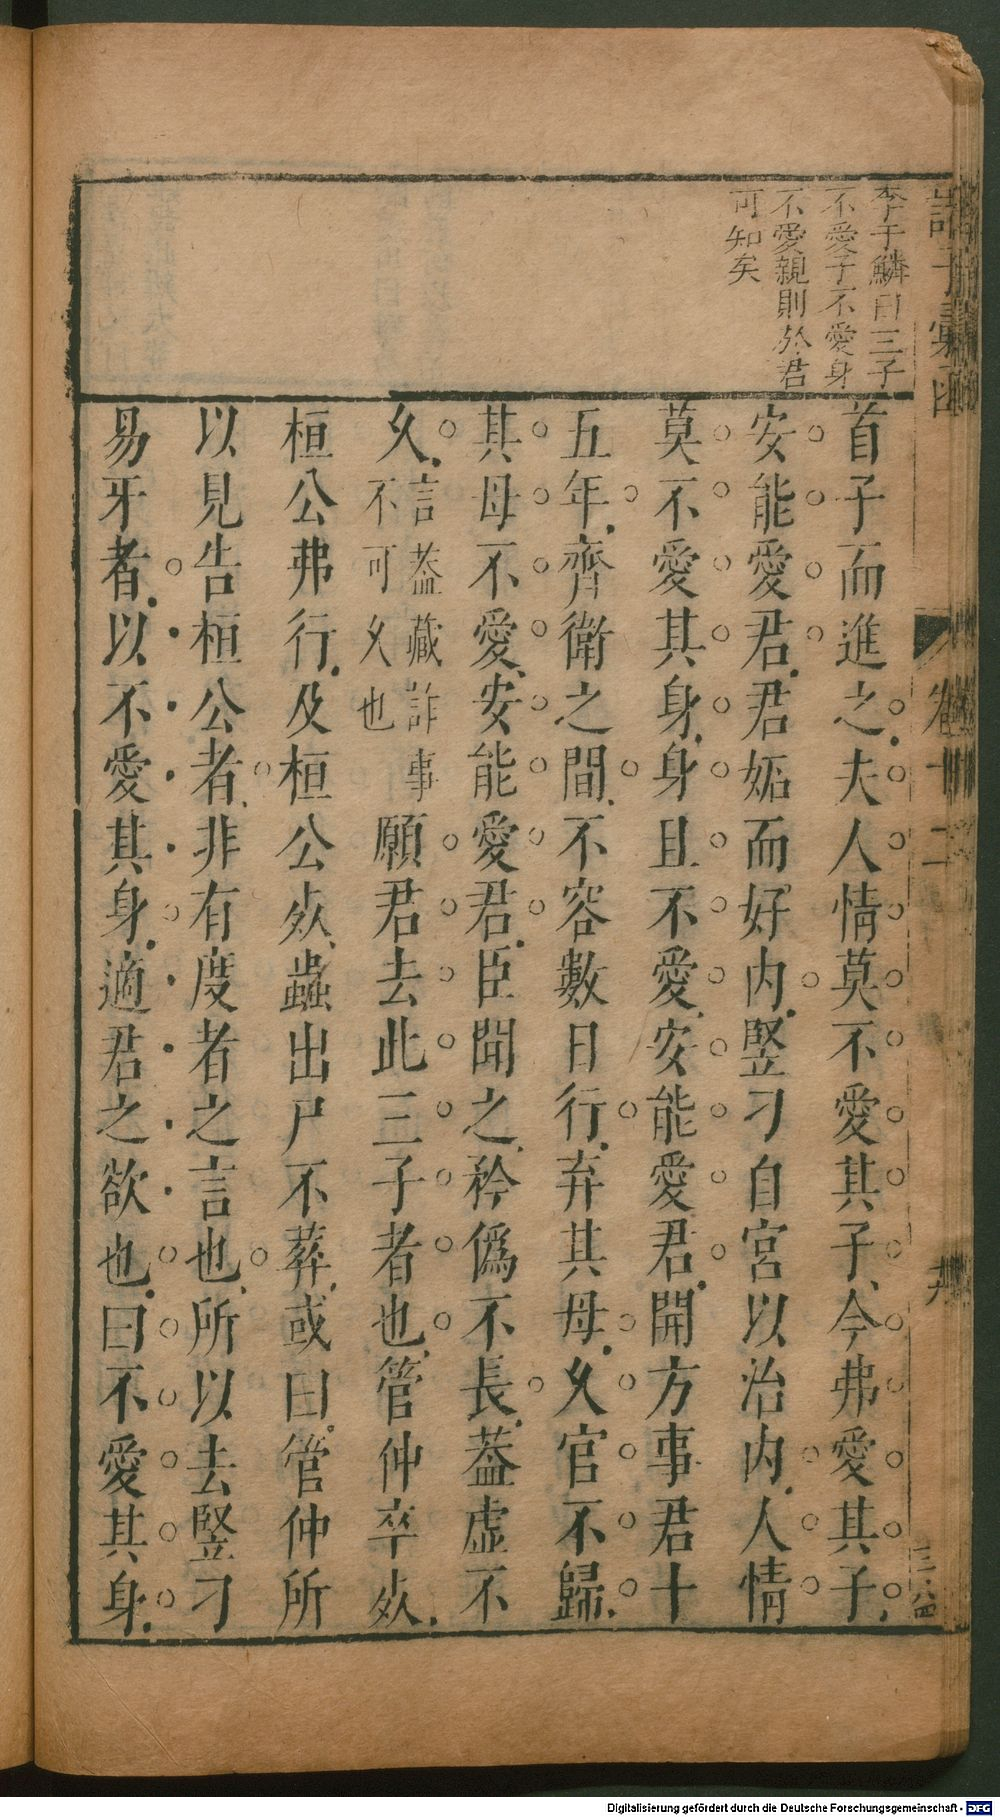 李于鱗曰三子
不愛子不愛身
不愛親則於君
可知矣
首子而進之夫人情莫不愛其子今弗愛其子
安能愛君君妬而好内竪刁自宮以治内人情
莫不愛其身身且不愛安能愛君開方事君十
五年齊衛之間不容數日行弃其母久官不歸
其母不愛安能愛君臣聞之矜僞不長葢虛不
久言葢藏詐事不可久也願君去此三子者也管仲卒死
桓公弗行及桓公死蟲出尸不葬或曰管仲所
以見告桓公者非有度者之言也所以去竪刁
易牙者以不愛其身適君之欲也曰不愛其身
卷十二
Digitalisierung gefördert durch die Deutsche Forschungsgemeinschaft - DFG